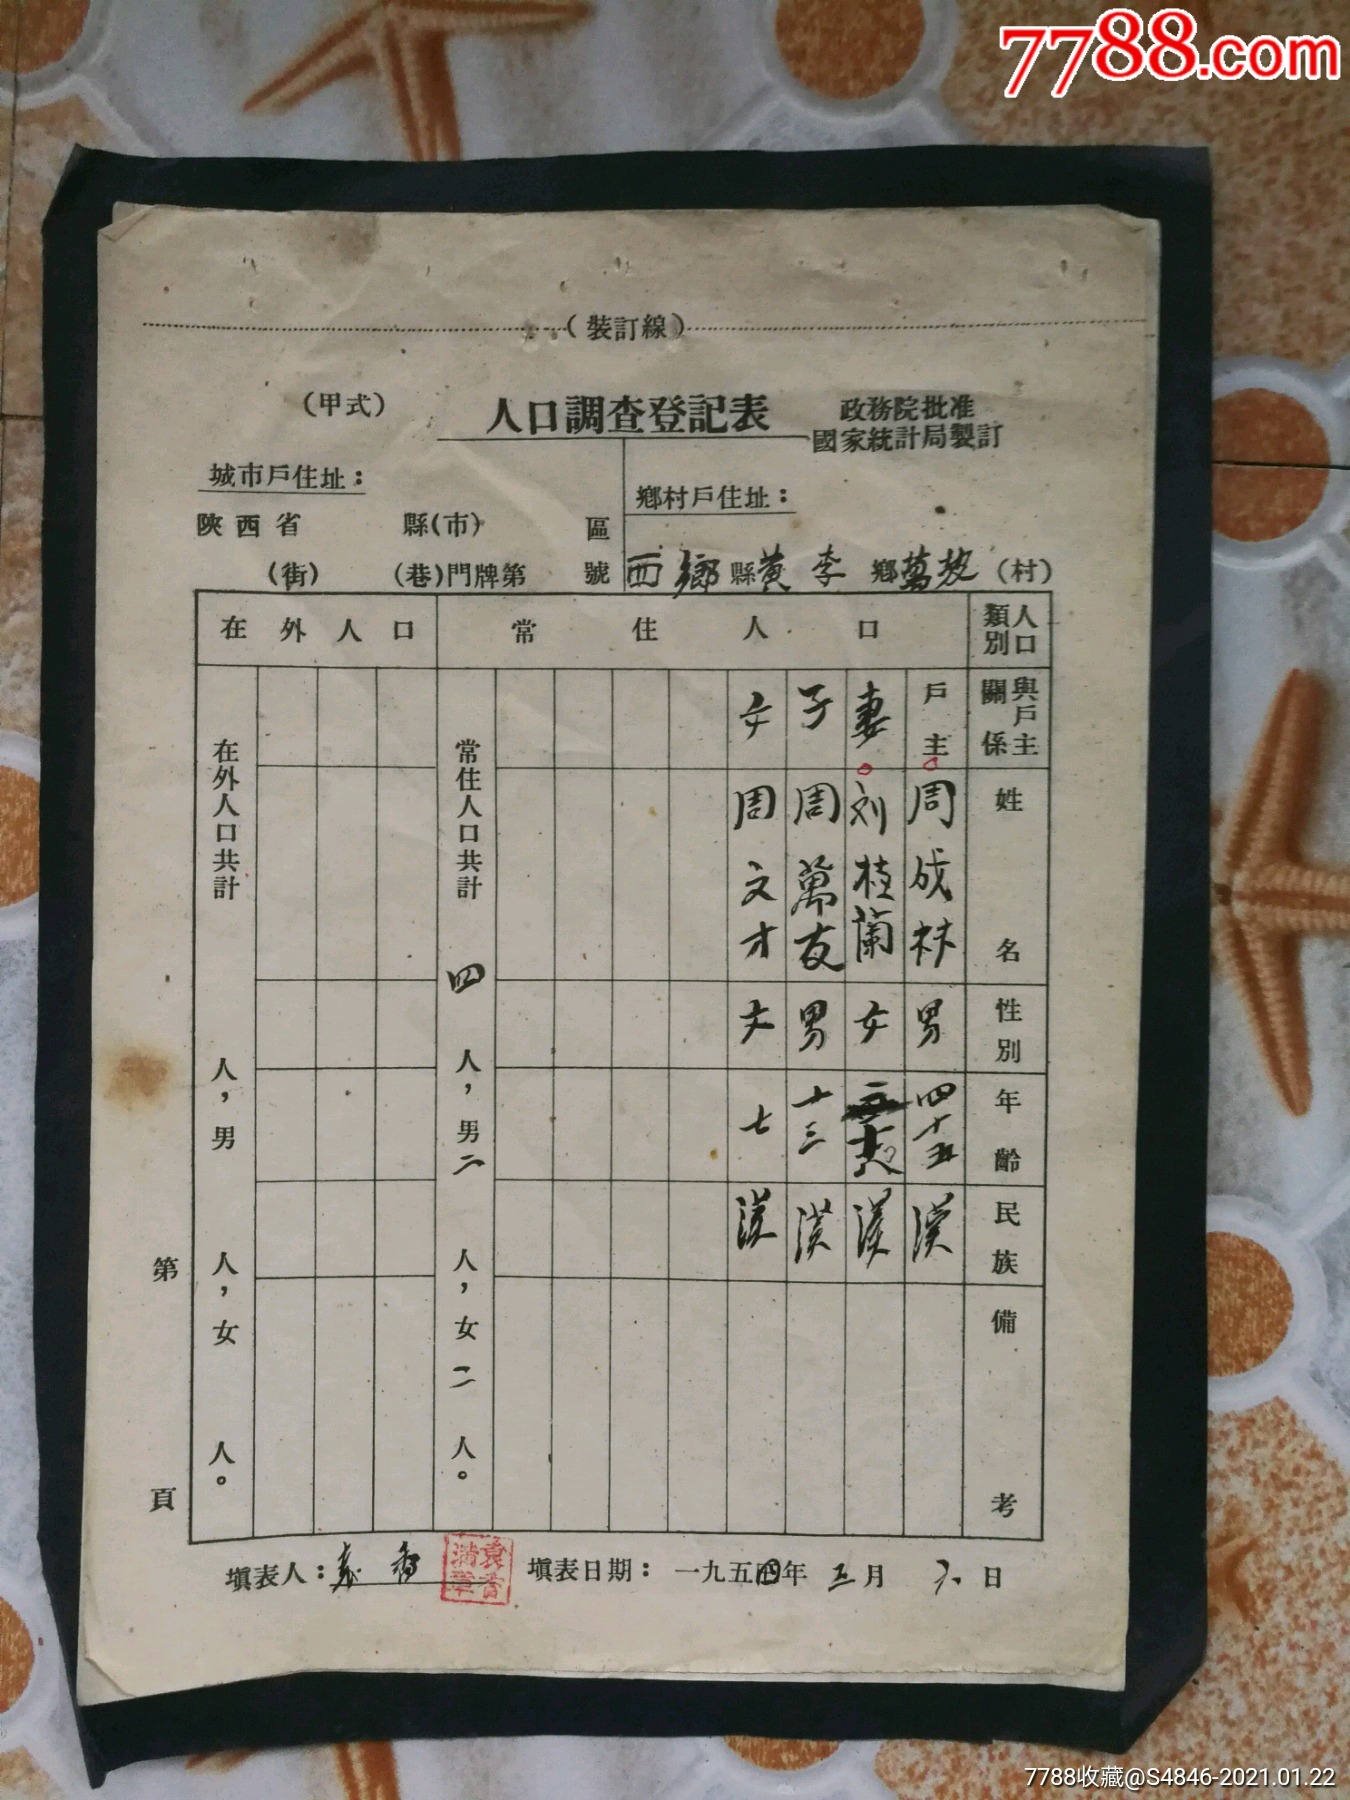 7788.com
（裝訂線）
（甲式）
人口調查登記表
政務院批准
國家統計局製訂
城市戶住址：
陝西省 縣(市) 區
(街) (巷)門牌第 號
鄉村戶住址：
西鄉縣黃李鄉萬坡（村）
人口類別
常住人口
在外人口
與戶主關係
姓名
性別
年齡
民族
備考
戶主 周成林 男 四十五 漢
妻 刘桂蘭 女 漢
子 周萬友 男 十三 漢
女 周文才 女 七 漢
常住人口共計 四 人，男 二 人，女 二 人。
在外人口共計 人，男 人，女 人。
第 頁
填表人：袁
填表日期：一九五四年 五月 六日
7788收藏@S4846-2021.01.22